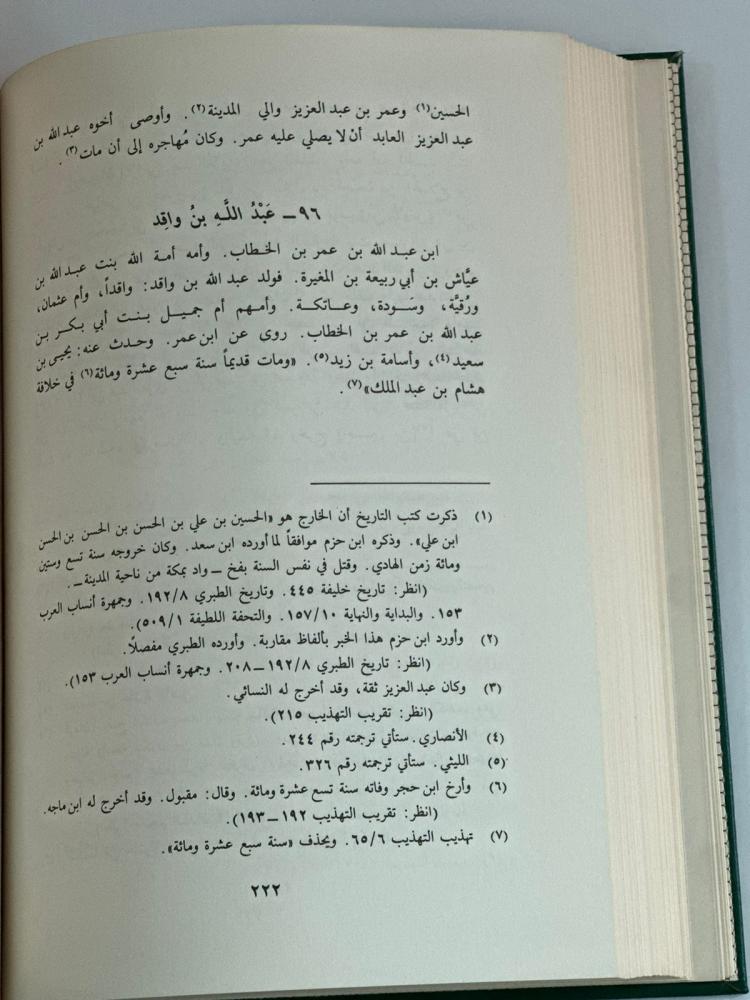 الحسين(١) وعمر بن عبد العزيز والي المدينة(٢). وأوصى أخوه عبد الله بن
عبد العزيز العابد أنْ لا يصلي عليه عمر. وكان مُهاجره إلى أن مات(٣).
٩٦ ـ عَبْدُ اللَّـهِ بنُ واقِد
ابن عبد الله بن عمر بن الخطاب. وأمه أمة الله بنت عبد الله بن
عيَّاش بن أبي ربيعة بن المغيرة. فولد عبد الله بن واقد: واقداً، وأم عثمان،
ورُقيَّة، وسَودة، وعاتكة. وأمهم أم جميل بنت أبي بكر بن
عبد الله بن عمر بن الخطاب. روى عن ابن عمر. وحدث عنه: يحيى بن
سعيد(٤)، وأسامة بن زيد(٥). «ومات قديماً سنة سبع عشرة ومائة(٦) في خلافة
هشام بن عبد الملك»(٧).
(١) ذكرت كتب التاريخ أن الخارج هو «الحسين بن علي بن الحسن بن الحسن بن الحسن
ابن علي». وذكره ابن حزم موافقاً لما أورده ابن سعد. وكان خروجه سنة تسع وستين
ومائة زمن الهادي. وقتل في نفس السنة بفخ ـ واد بمكة من ناحية المدينة ـ.
(انظر: تاريخ خليفة ٤٤٥. وتاريخ الطبري ١٩٢/٨. وجمهرة أنساب العرب
١٥٣. والبداية والنهاية ١٥٧/١٠. والتحفة اللطيفة ٥٠٩/١).
(٢) وأورد ابن حزم هذا الخبر بألفاظ مقاربة. وأورده الطبري مفصلاً.
(انظر: تاريخ الطبري ١٩٢/٨ ـ ٢٠٨. وجمهرة أنساب العرب ١٥٣).
(٣) وكان عبد العزيز ثقة، وقد أخرج له النسائي.
(انظر: تقريب التهذيب ٢١٥).
(٤) الأنصاري. ستأتي ترجمته رقم ٢٤٤.
(٥) الليثي. ستأتي ترجمته رقم ٣٢٦.
(٦) وأرخ ابن حجر وفاته سنة تسع عشرة ومائة. وقال: مقبول. وقد أخرج له ابن ماجه.
(انظر: تقريب التهذيب ١٩٢ ـ ١٩٣).
(٧) تهذيب التهذيب ٦٥/٦. ويحذف «سنة سبع عشرة ومائة».
٢٢٢